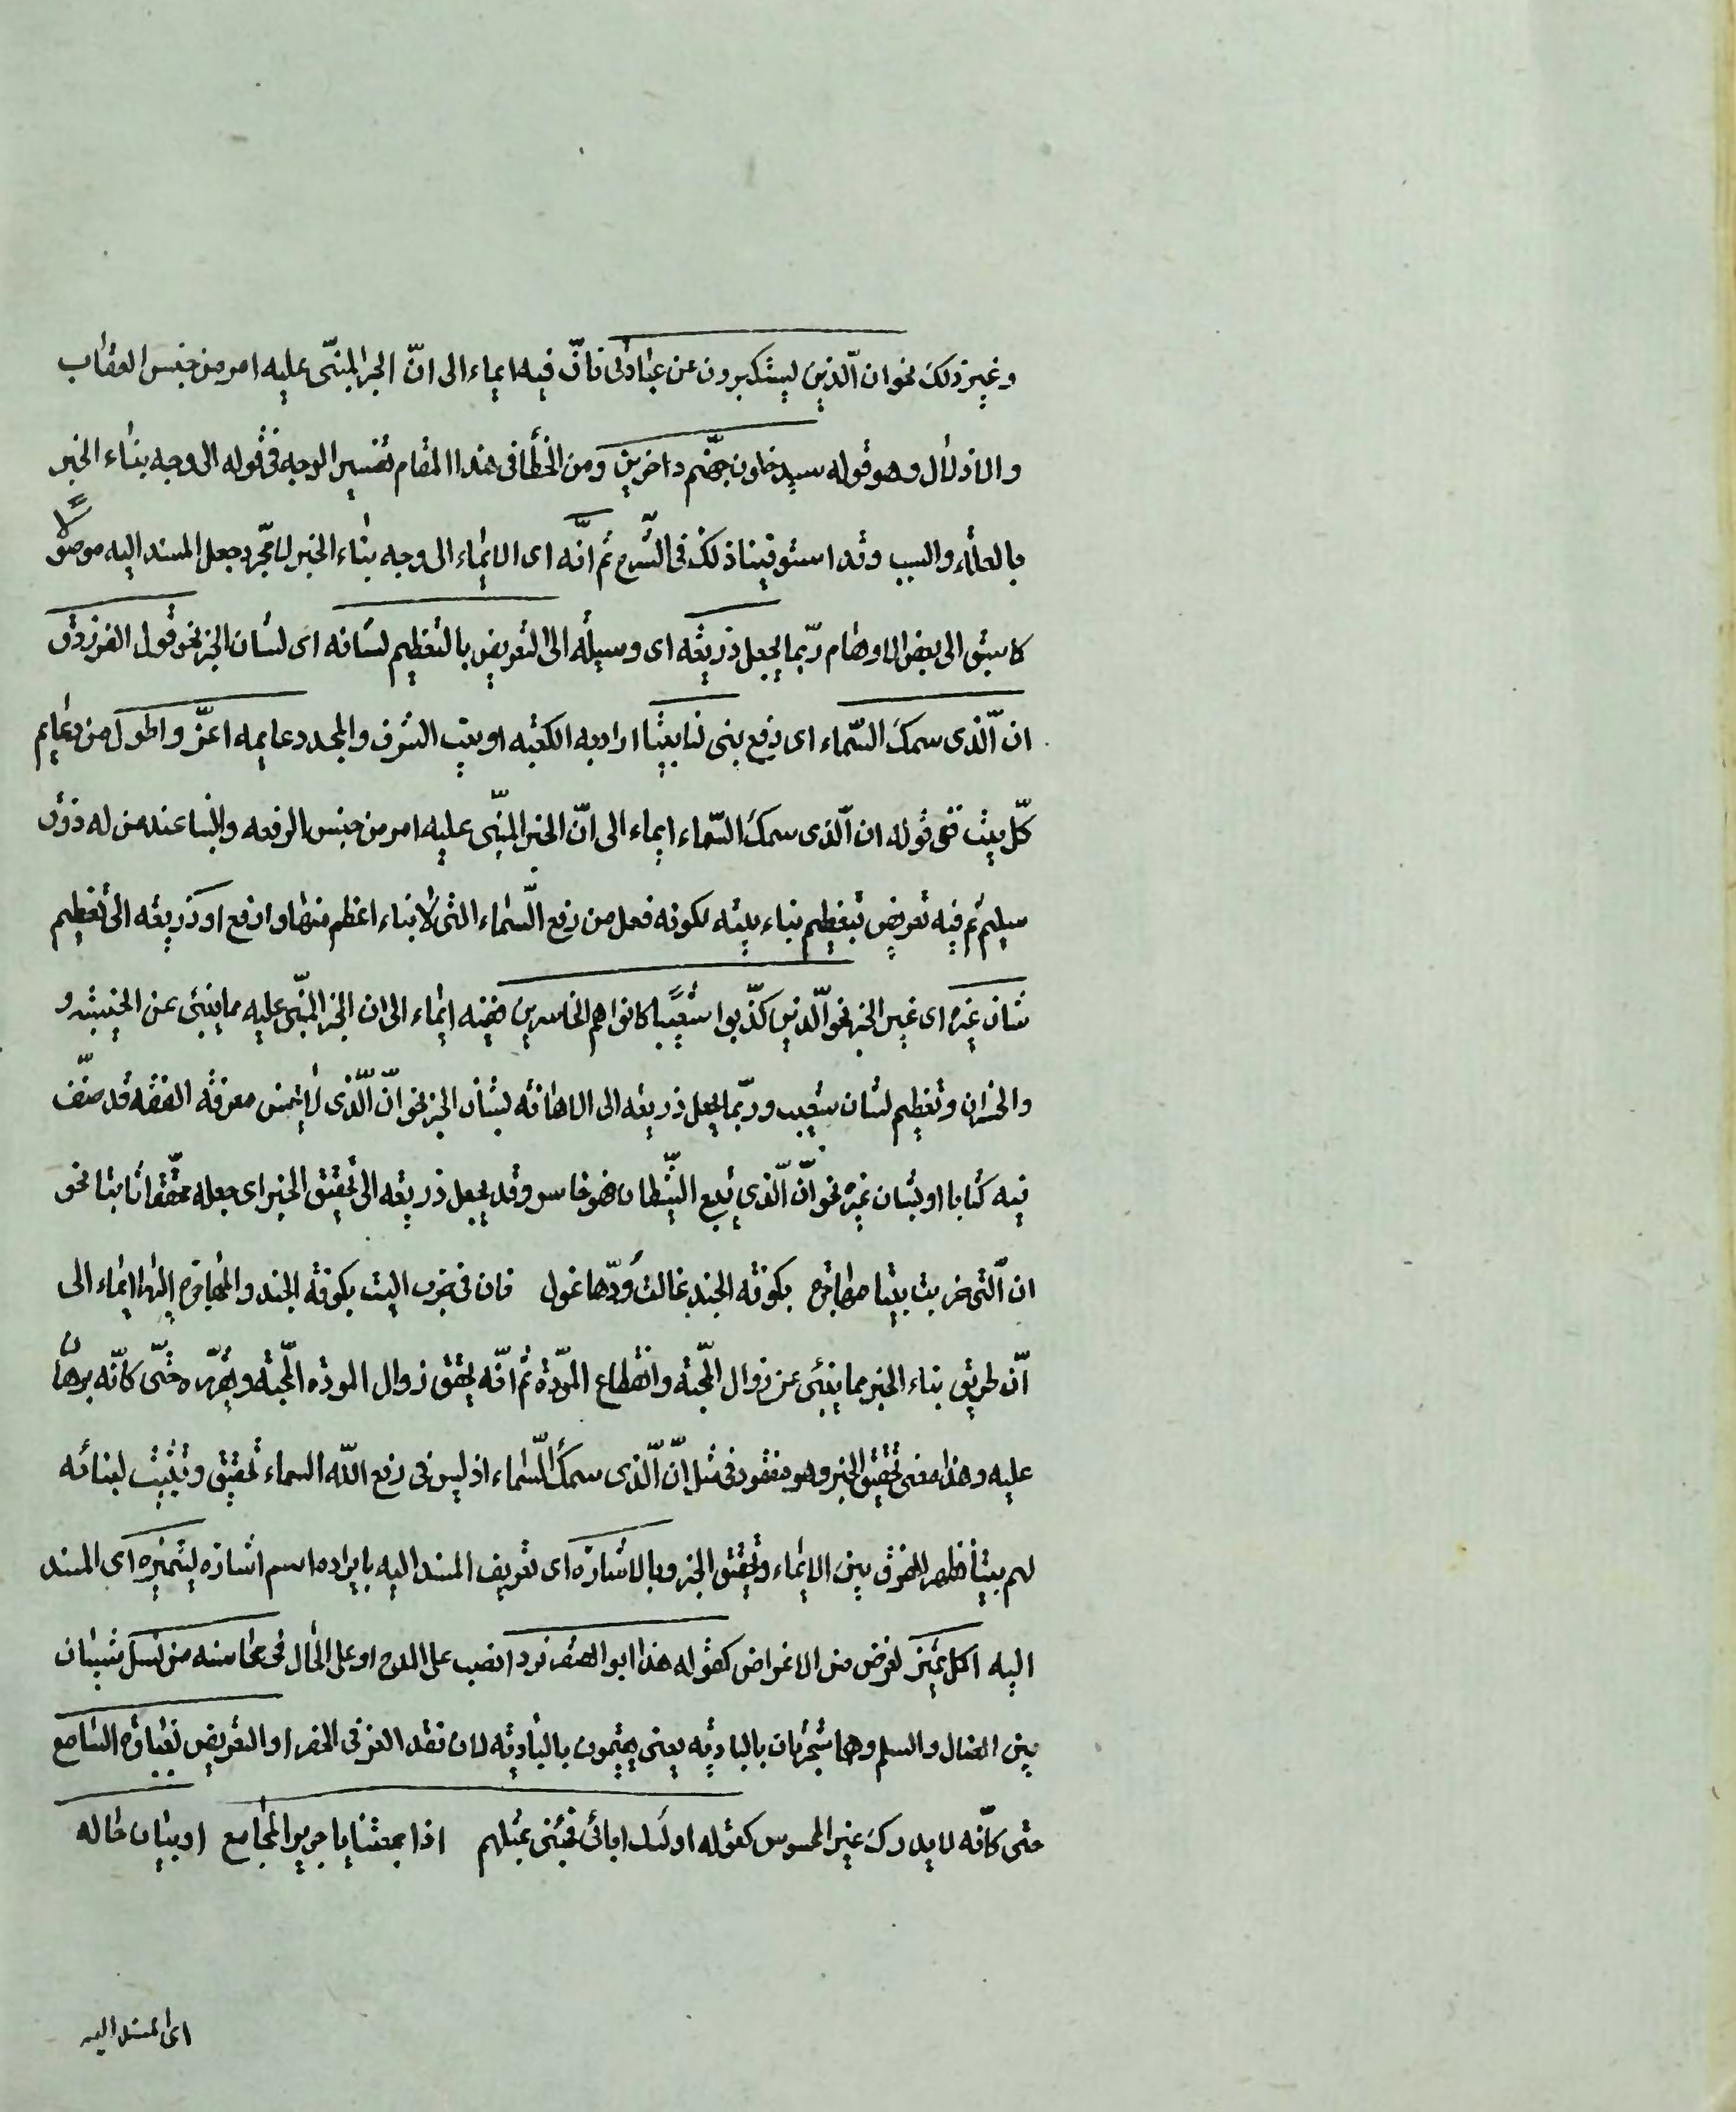 وغير ذلك نحو ان الّذين يستكبرون عن عبادتى فانّ فيه ايماء الى انّ الخبر المبنّى عليه امر من جنس العقاب
والاذلال وهو قوله سيدخلون جهنّم داخرين ومن الخطأ فى هذا المقام تفسير الوجه فى قوله الى وجه بناء الخبر
بالعلّه والسبب وقد استوفينا ذلك فى الشّرح ثم انّه اى الايماء الى وجه بناء الخبر لا مجّرد جعل المسند اليه موصولا
كما سبق الى بعض الاوهام ربّما يجعل ذريعه اى وسيله الى التعريض بالتعظيم لشانه اى لشان الخبر نحو قول الفرزدق
ان الّذى سمك السّماء اى رفع بنى لنا بيتا اراد به الكعبه او بيت الشرف والمجد دعايمه اعزّ واطول من دعايم
كلّ بيت ففى قوله ان الّذى سمك السّماء ايماء الى انّ الخبر المبنّى عليه امر من جنس الرفعه والبنا عند من له ذوق
سليم ثم فيه تعريض بتعظيم بناء بيته لكونه فعل من رفع السّماء التى لا بناء اعظم منها وارفع او ذريعه الى تعظيم
شان غيره اى غير الخبر نحو الّذين كذّبوا شعيبًا كانوا هم الخاسرين ففيه ايماء الى ان الخبر المبنّى عليه مما ينبئ عن الخيبه و
والخسران وتعظيم لشان شعيب وربّما يجعل ذريعه الى الاهانه لشان الخبر نحو انّ الّذى لا يحسن معرفه الفقه قد صنّف
فيه كتابا او لشان غيره نحو انّ الّذى يتبع الشّيطان فهو خاسر وقد يجعل ذريعه الى تحقيق الخبر اى جعله محقّقا ثابتا نحو
ان الّتى ضربت بيتا مهاجرة بكوفه الجند غالت وُدّها غول فان فى ضرب البيت بكوفه الجند والمهاجره اليها ايماء الى
انّ طريق بناء الخبر مما ينبئ عن زوال المحّبه وانقطاع المودّة ثم انّه يحقق زوال الموده المحّبه ويقرّره حتّى كانّه برهان
عليه وهذا معنى تحقيق الخبر وهو مفقود فى مثل انّ الّذى سمك السّماء اذ ليس فى رفع الله السماء تحقيق وتثبيت لبنائه
لهم بيتا فظهر الفرق بين الايماء وتحقيق الخبر وبالاشاره اى تعريف المسند اليه بايراده اسم اشاره ليتميّزه اى المسند
اليه اكمل تميّز لغرض من الاغراض كقوله هذا ابو الصقر فردا نصب على المدح او على الحال فى محاسنه من نسل شيبان
بين الضال والسلم وهما شجرتان بالباديه يعنى يقيمون بالباديه لان فقد العزّ فى الحضر او التعريض بغباوه السّامع
حتى كانّه لا يدرك غير المحسوس كقوله اولئك ابائى فجئنى بمثلهم اذا جمعتنا يا جرير المجامع او بيان حاله
اى المسند اليه